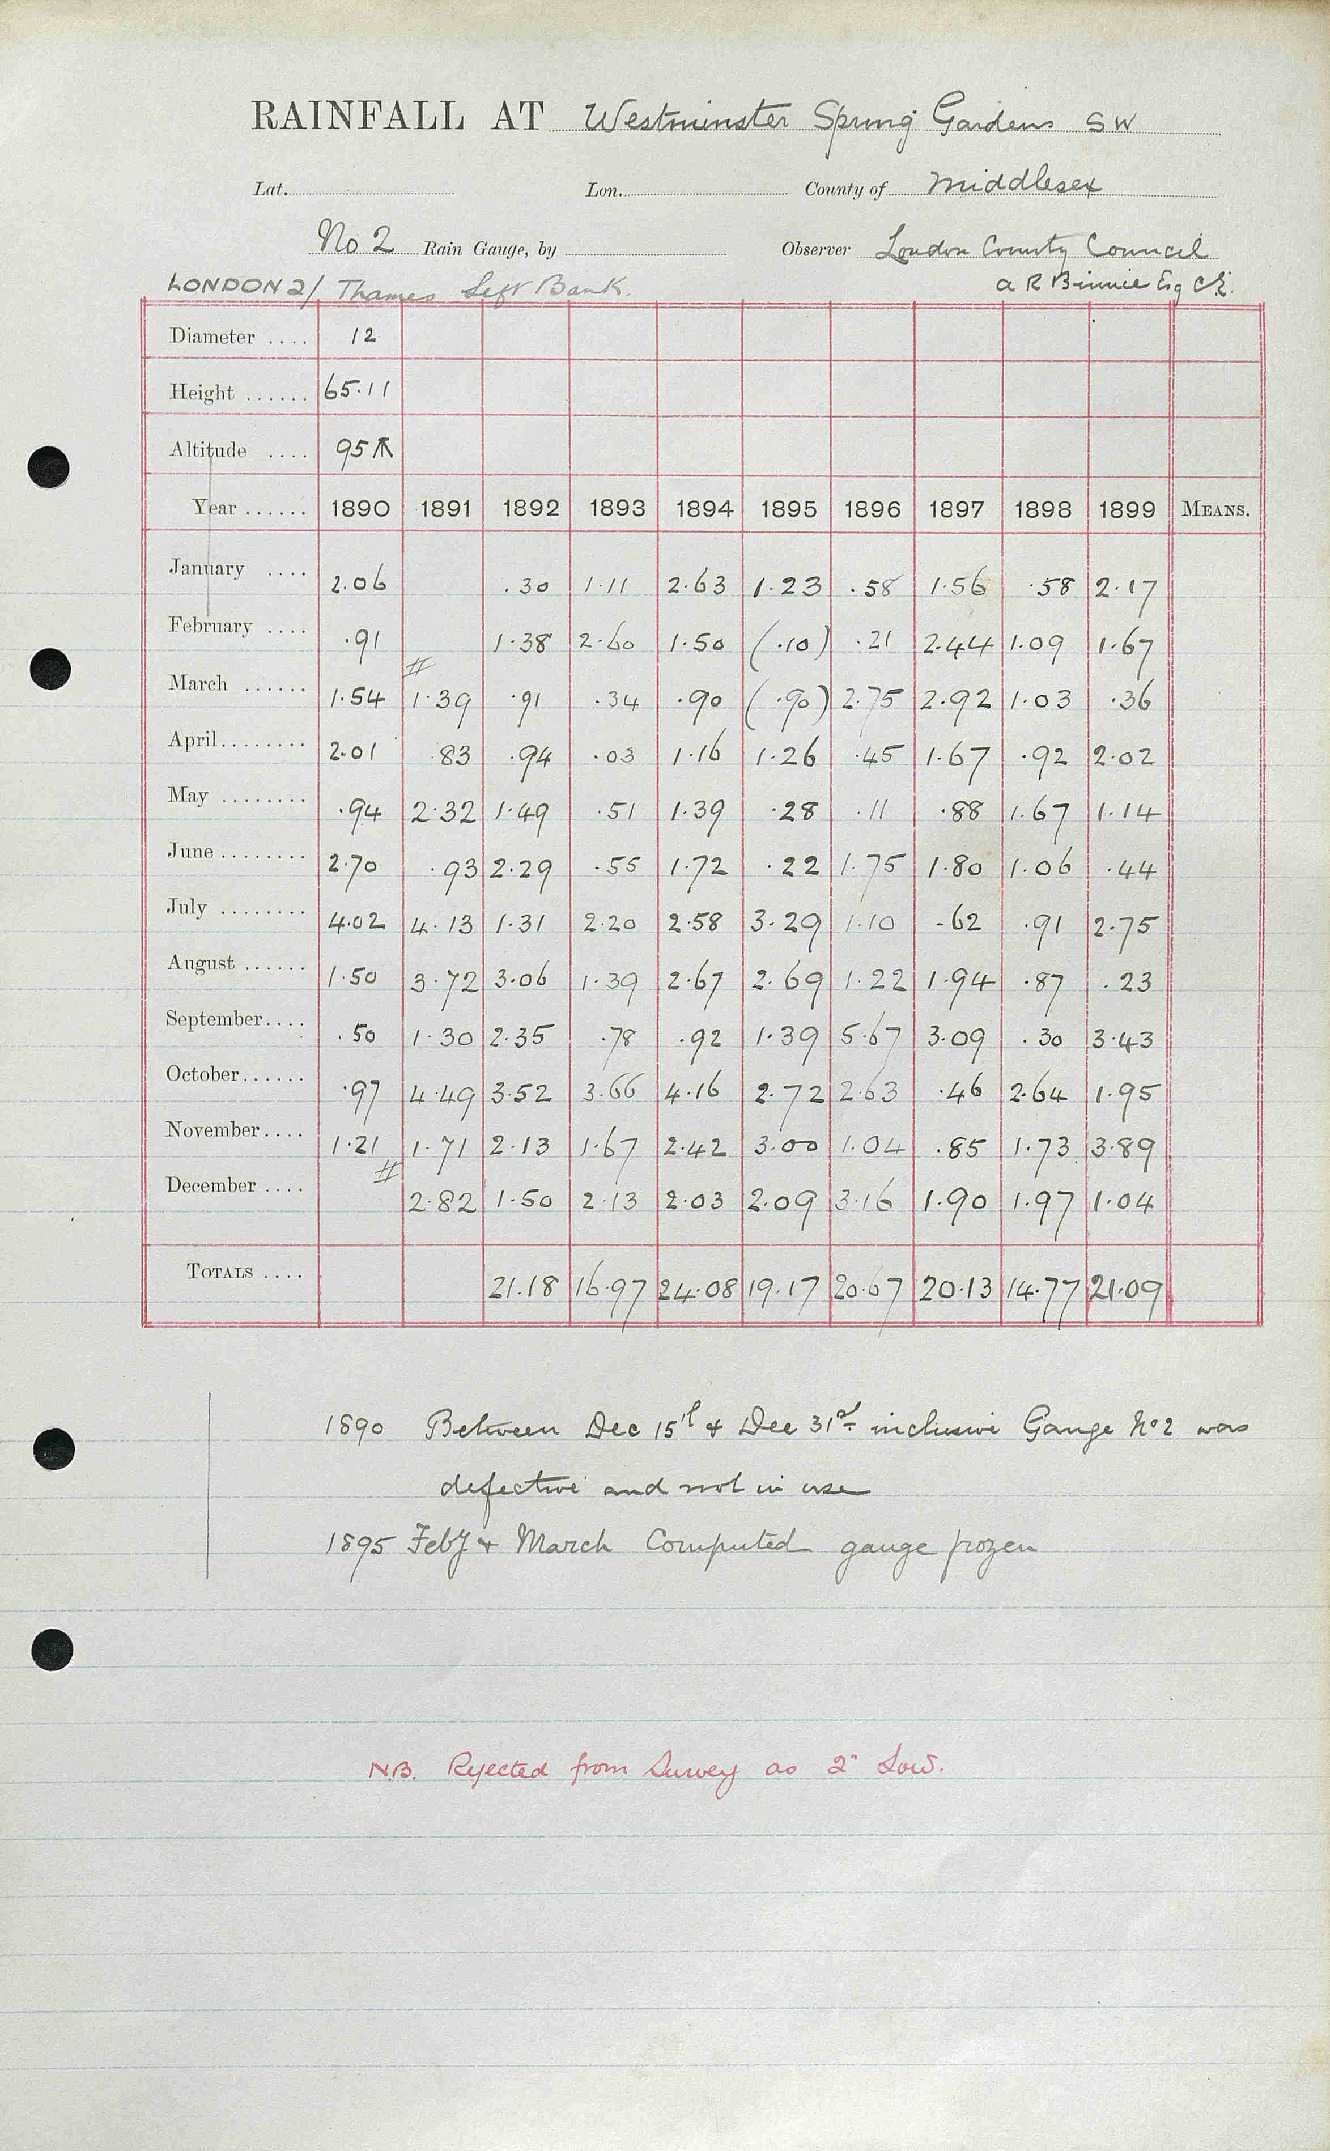 RAINFALL AT Westminster Spring Gardens SW
Lat. Lon. County of Middlesex
No 2 Rain Gauge, by Observer London County Council
LONDON 2/ Thames Left Bank. A R Binnie Esq CE.
Diameter .... 12
Height ...... 65.11
Altitude .... 95
Year ...... 1890 1891 1892 1893 1894 1895 1896 1897 1898 1899 MEANS.
January .... 2.06 .30 1.11 2.63 1.23 .58 1.56 .58 2.17
February .... .91 1.38 2.60 1.50 (.10) .21 2.44 1.09 1.67
March ...... 1.54 # 1.39 .91 .34 .90 (.90) 2.75 2.92 1.03 .36
April........ 2.01 .83 .94 .03 1.16 1.26 .45 1.67 .92 2.02
May ........ .94 2.32 1.49 .51 1.39 .28 .11 .88 1.67 1.14
June ........ 2.70 .93 2.29 .55 1.72 .22 1.75 1.80 1.06 .44
July ........ 4.02 4.13 1.31 2.20 2.58 3.29 1.10 .62 .91 2.75
August ...... 1.50 3.72 3.06 1.39 2.67 2.69 1.22 1.94 .87 .23
September.... .50 1.30 2.35 .78 .92 1.39 5.67 3.09 .30 3.43
October...... .97 4.49 3.52 3.66 4.16 2.72 2.63 .46 2.64 1.95
November.... 1.21 1.71 2.13 1.67 2.42 3.00 1.04 .85 1.73 3.89
December .... # 2.82 1.50 2.13 2.03 2.09 3.16 1.90 1.97 1.04
TOTALS .... 21.18 16.97 24.08 19.17 20.67 20.13 14.77 21.09
1890 Between Dec 15th & Dec 31st inclusive Gauge No 2 was
defective and not in use
1895 Feby & March Computed gauge frozen
N.B. Rejected from Survey as 2" Low.